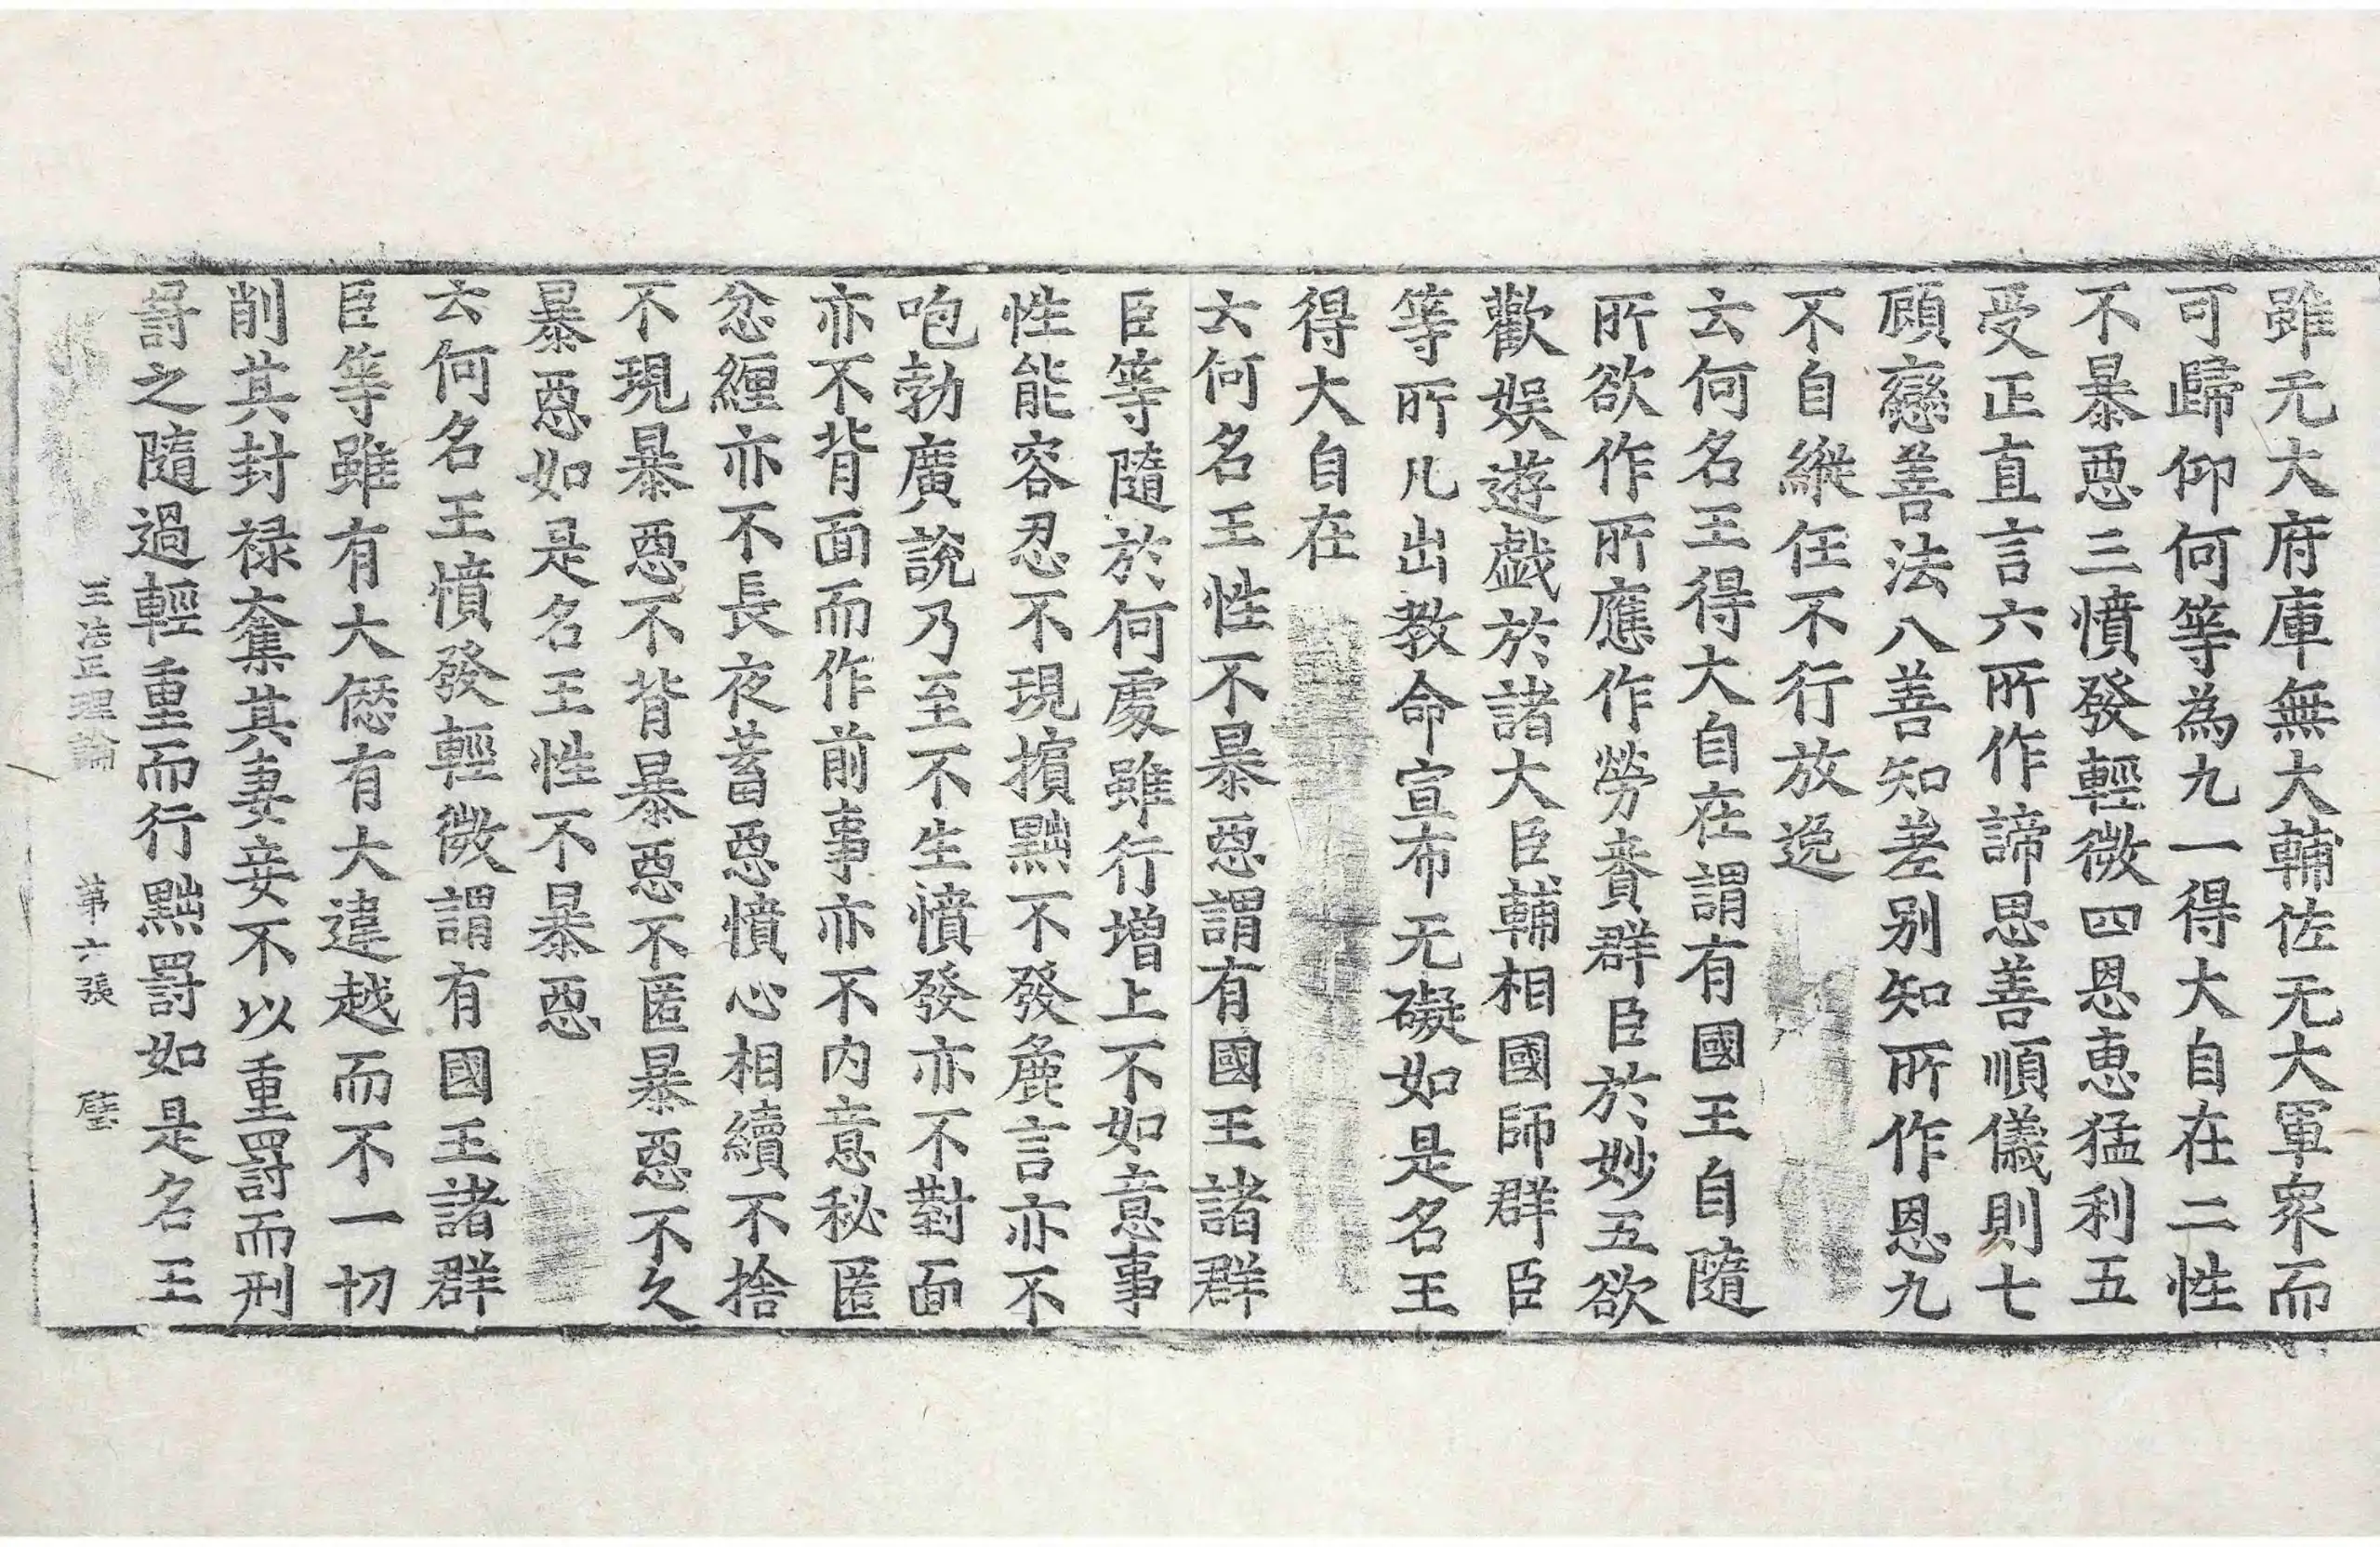 雖无大府庫無大輔佐无大軍衆而
可歸仰何等為九一得大自在二性
不暴惡三憤發輕微四恩惠猛利五
受正直言六所作諦思善順儀則七
顧戀善法八善知差别知所作恩九
不自縱任不行放逸
云何名王得大自在謂有國王自隨
所欲作所應作勞賚群臣於妙五欲
歡娛遊戲於諸大臣輔相國師群臣
等所凡出教命宣布无礙如是名王
得大自在
云何名王性不暴惡謂有國王諸群
臣等隨於何處雖行增上不如意事
性能容忍不現擯黜不發麁言亦不
咆勃廣說乃至不生憤發亦不對面
亦不背面而作前事亦不内意秘匿
忿纏亦不長夜蓄惡憤心相續不捨
不現暴惡不背暴惡不匿暴惡不久
暴惡如是名王性不暴惡
云何名王憤發輕微謂有國王諸群
臣等雖有大愆有大違越而不一切
削其封禄奪其妻妾不以重罸而刑
罸之隨過輕重而行黜罸如是名王
王法正理論 苐六張 壁